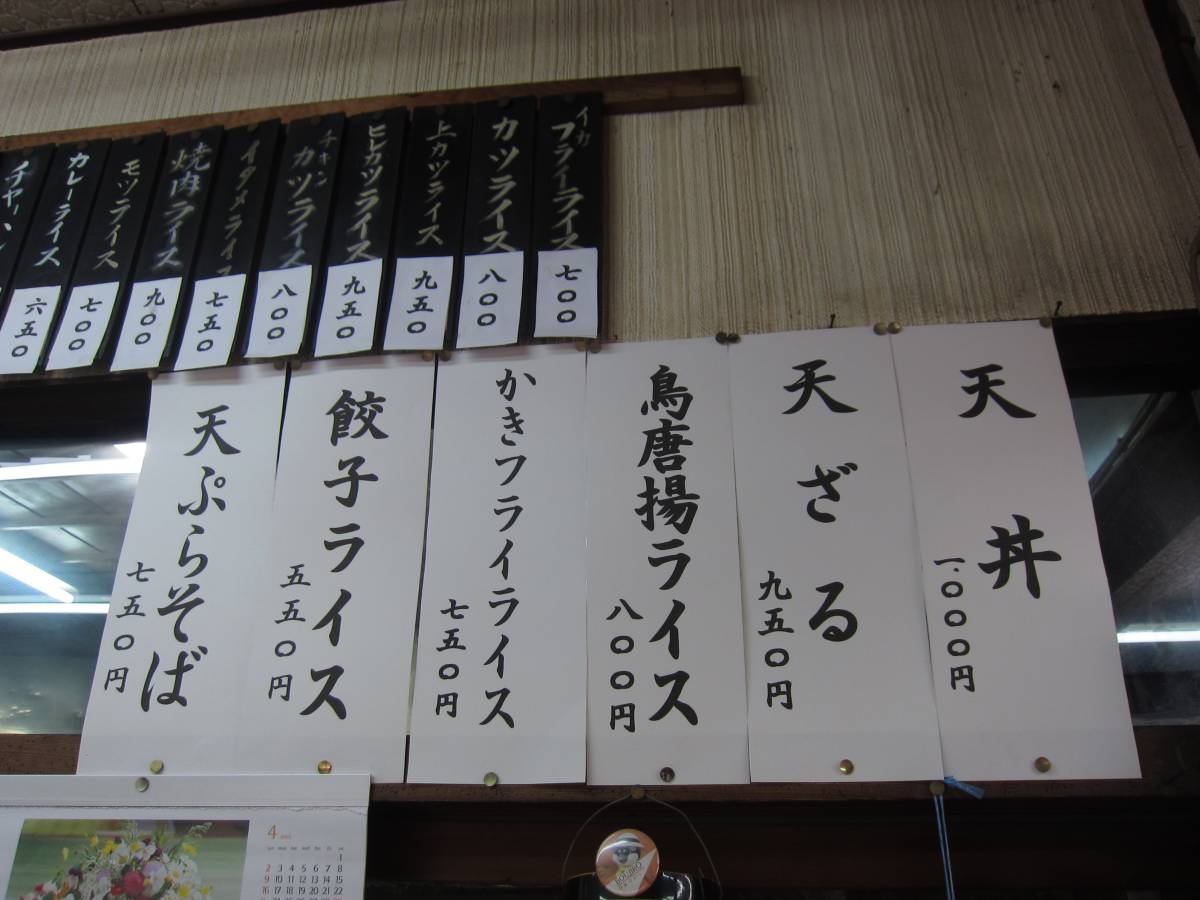 イカフライライス
七〇〇
カツライス
八〇〇
上カツライス
九五〇
ヒレカツライス
九五〇
チキンカツライス
八〇〇
イタメライス
七五〇
焼肉ライス
九〇〇
モツライス
七〇〇
カレーライス
六五〇
チャーハン
天丼
一.〇〇〇円
天ざる
九五〇円
鳥唐揚ライス
八〇〇円
かきフライライス
七五〇円
餃子ライス
五五〇円
天ぷらそば
七五〇円
4
1
2 3 4 5 6 7 8
9 10 11 12 13 14 15
16 17 18 19 20 21 22